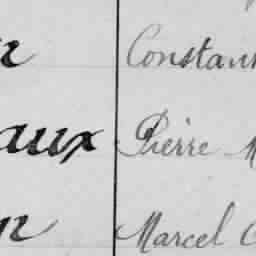 n Constant
aux Pierre M
n Marcel C